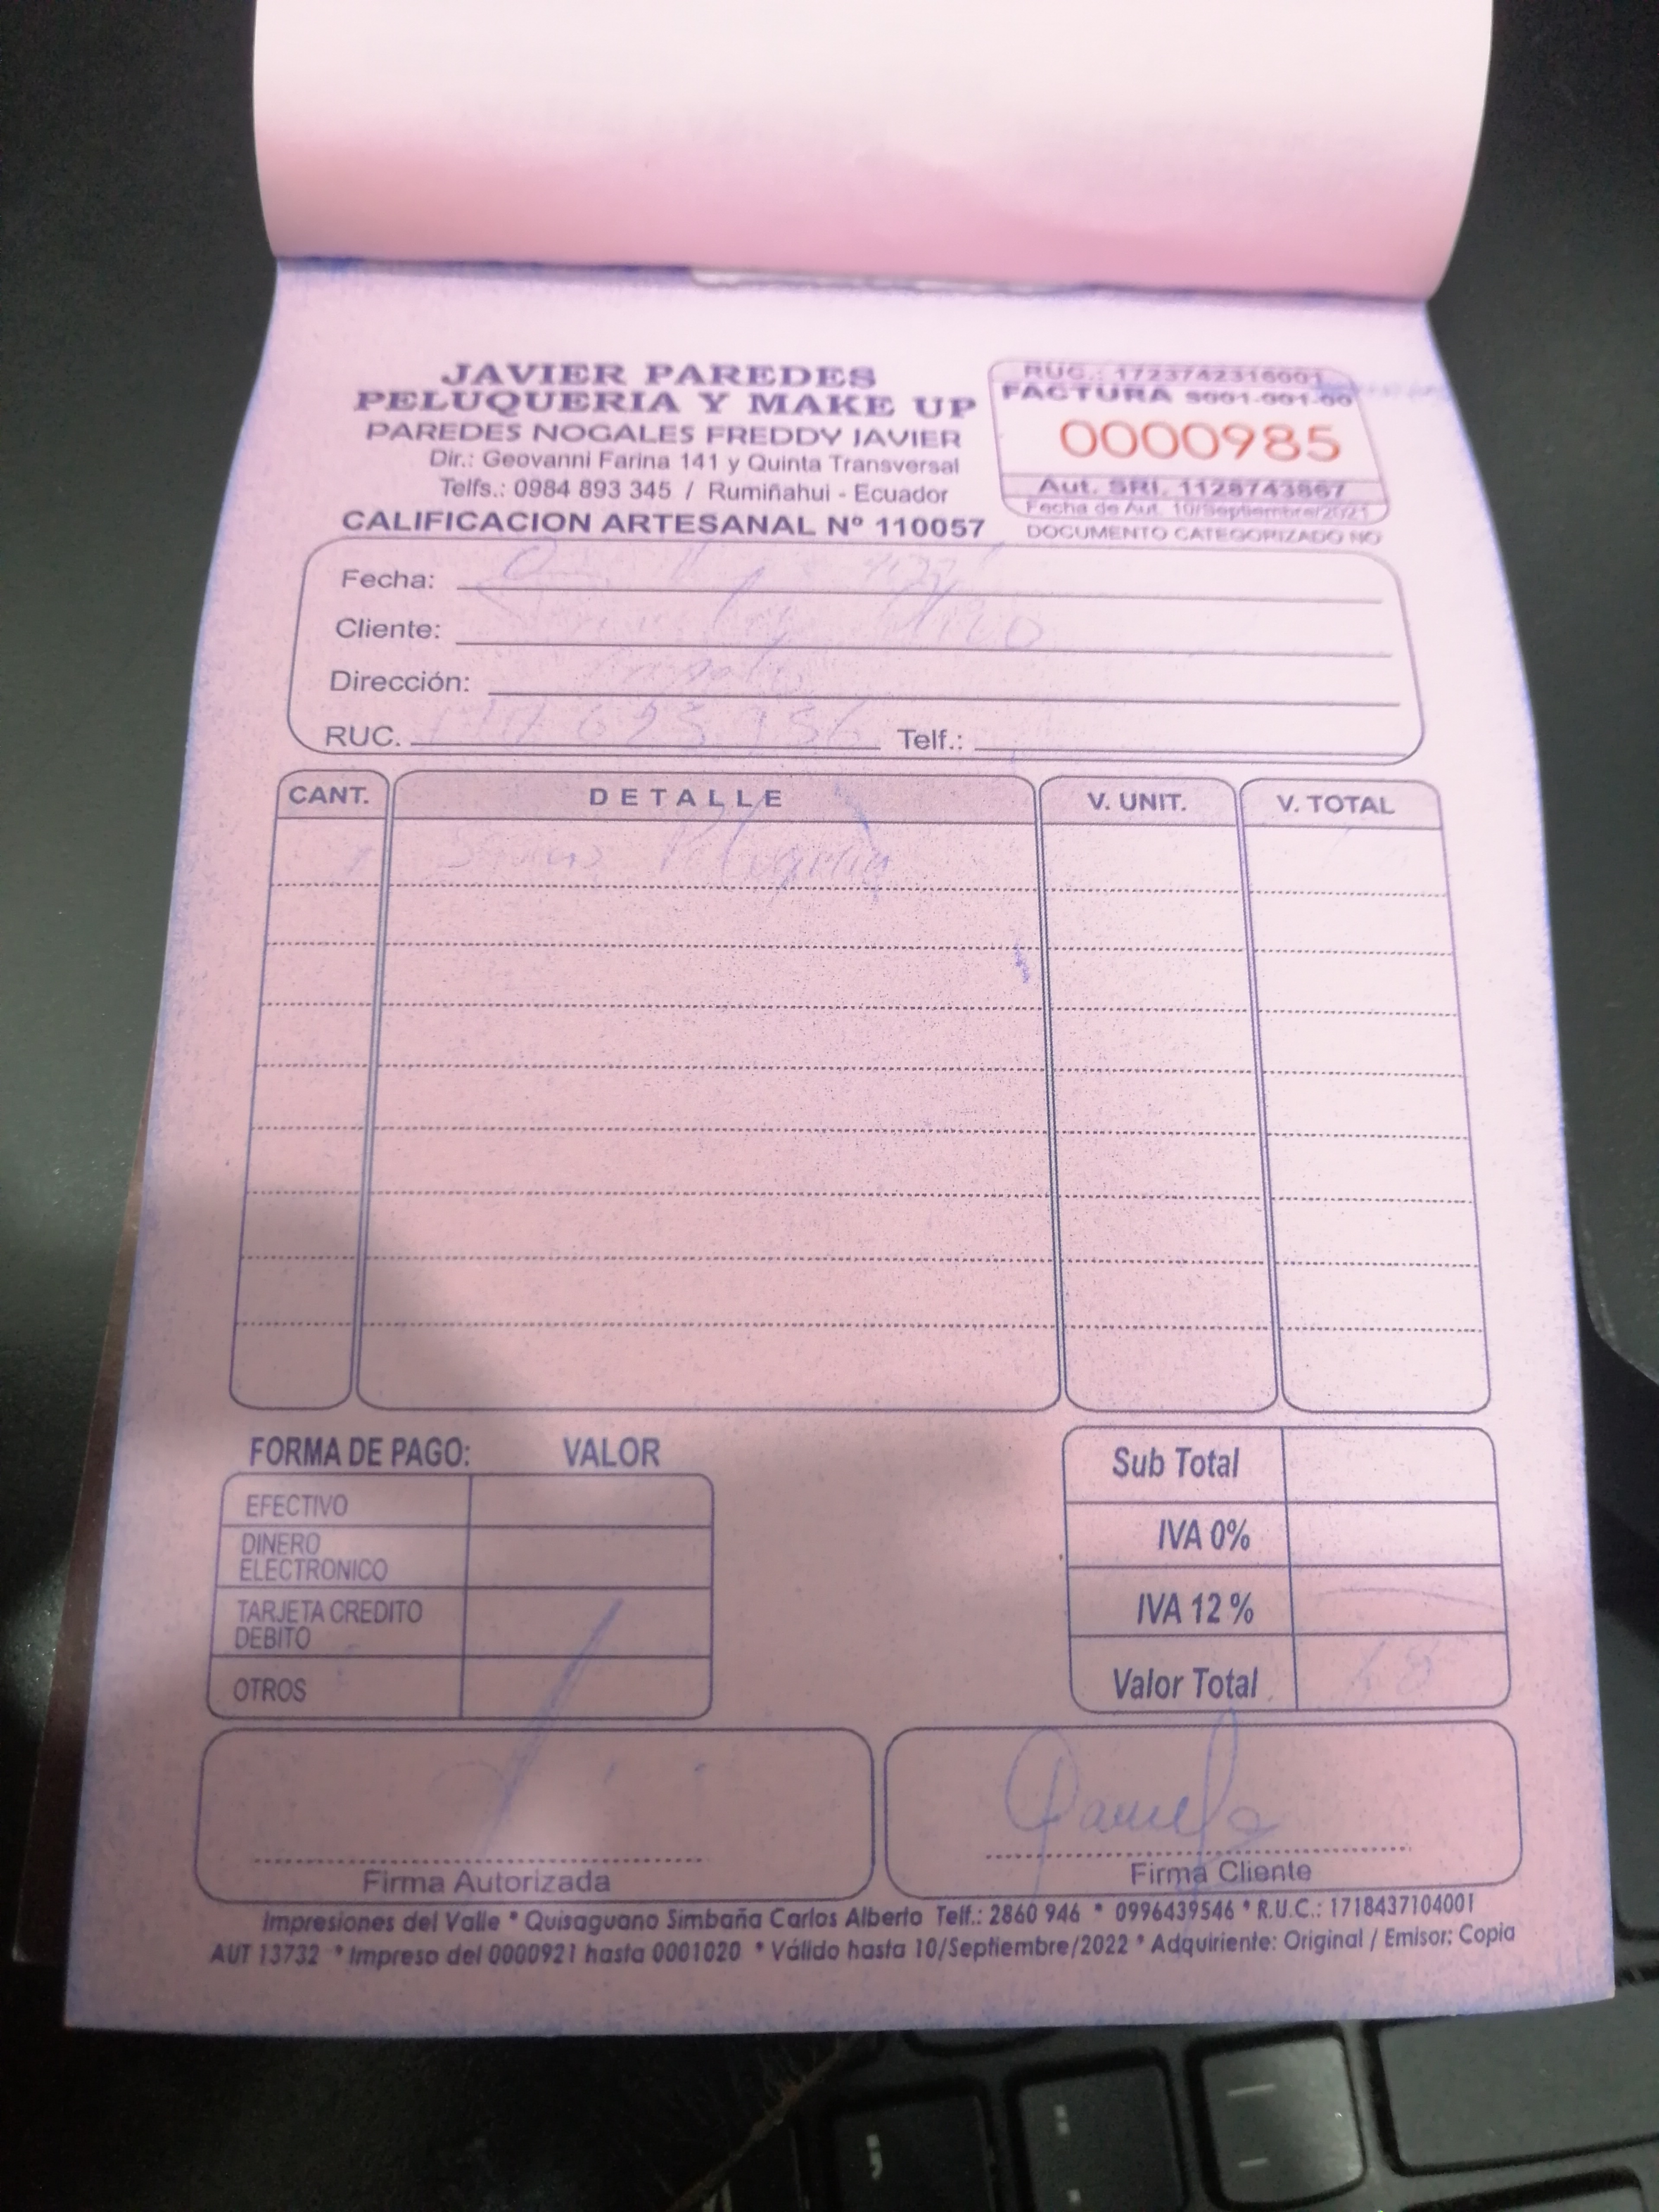 JAVIER PAREDES
PELUQUERIA Y MAKE UP
PAREDES NOGALES FREDDY JAVIER
Dir.: Geovanni Farina 141 y Quinta Transversal
Telfs.: 0984 893 345 / Rumiñahui - Ecuador
CALIFICACION ARTESANAL Nº 110057
RUC.: 1723742316001
FACTURA S001-001-00
0000985
Aut. SRI. 1128743867
Fecha de Aut. 10/Septiembre/2021
DOCUMENTO CATEGORIZADO NO
Fecha:
Cliente:
Dirección:
RUC.
Telf.:
CANT. DETALLE V. UNIT. V. TOTAL
Peluqueria
FORMA DE PAGO: VALOR
EFECTIVO
DINERO
ELECTRONICO
TARJETA CREDITO
DEBITO
OTROS
Sub Total
IVA 0%
IVA 12 %
Valor Total
Firma Autorizada
Firma Cliente
Impresiones del Valle * Quisaguano Simbaña Carlos Alberto Telf.: 2860 946 * 0996439546 * R.U.C.: 1718437104001
AUT 13732 * Impreso del 0000921 hasta 0001020 * Válido hasta 10/Septiembre/2022 * Adquiriente: Original / Emisor: Copia